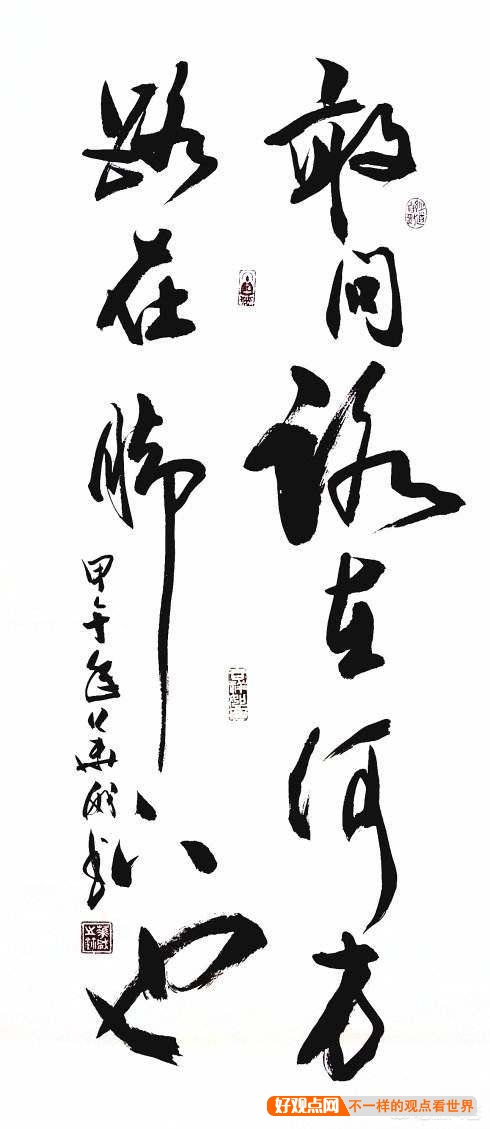 敢问路在何方
路在脚下也
甲午年
好观点网 不一样的观点看世界